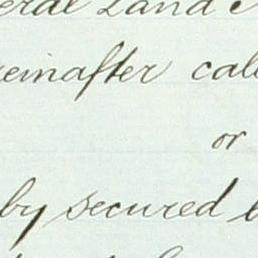 eral Land
einafter call
or
by secured b